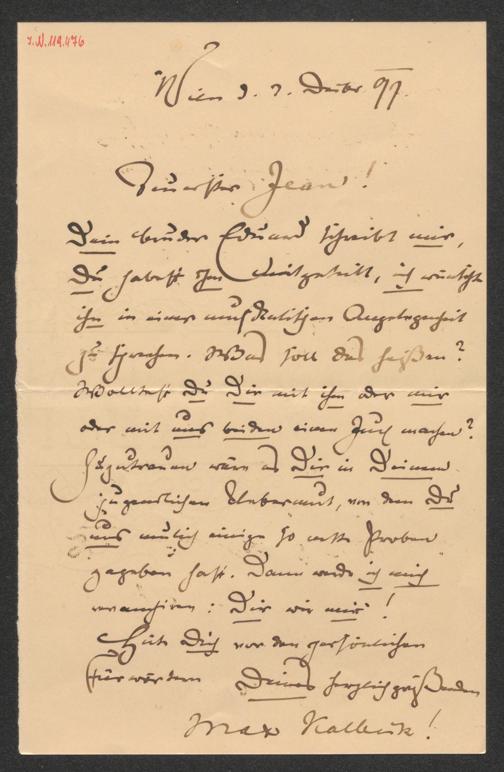 I.N. 119.476
Wien d. 7. Dezbr. 97.
Teuerster Jean!
Dein Bruder Eduard schreibt mir,
Du habest ihm mitgeteilt, ich wünschte
ihn in einer musikalischen Angelegenheit
zu sprechen. Was soll das heißen?
Wolltest Du Dir mit ihm oder mir
oder mit uns beiden einen Jux machen?
Zuzutrauen wäre es Dir in Deinem
jugendlichen Uebermut, von dem Du
uns neulich einige so nette Proben
gegeben hast. Dann werde ich mich
revanchiren: Dir wie mir!
Hüte Dich vor den persönlichen
Fürwörtern Deines herzlich grüßenden
Max Kalbeck!